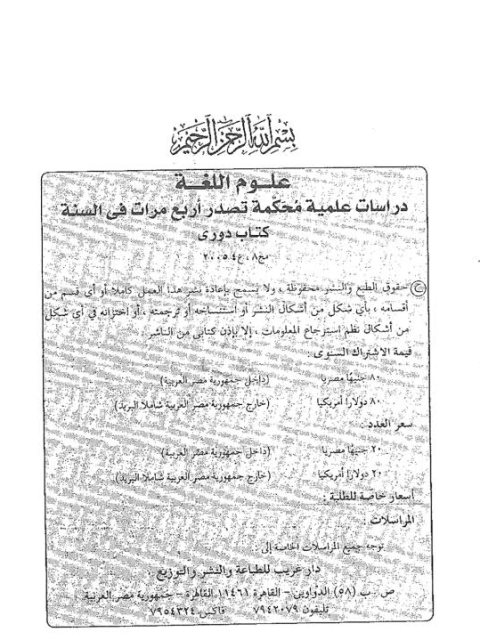 بسم الله الرحمن الرحيم
علوم اللغة
دراسات علمية مُحكَّمة تصدر أربع مرات فى السنة
كتاب دورى
مج٨، ع٤، ٢٠٠٥
© حقوق الطبع والنشر محفوظة، ولا يسمح بإعادة نشر هذا العمل كاملاً أو أى قسم من
أقسامه، بأي شكل من أشكال النشر أو استنساخه أو ترجمته، أو اختزانه فى أى شكل
من أشكال نظم استرجاع المعلومات، إلا بإذن كتابى من الناشر.
قيمة الاشتراك السنوى:
٨٠ جنيهًا مصريا (داخل جمهورية مصر العربية)
٨٠ دولارًا أمريكيا (خارج جمهورية مصر العربية شاملا البريد)
سعر العدد:
٢٠ جنيهًا مصريا (داخل جمهورية مصر العربية)
٢٠ دولارًا أمريكيا (خارج جمهورية مصر العربية شاملا البريد)
أسعار خاصة للطلبة:
المراسلات:
توجه جميع المراسلات الخاصة إلى:
دار غريب للطباعة والنشر والتوزيع
ص. ب (٥٨) الدواوين - القاهرة ١١٤٦١ القاهرة - جمهورية مصر العربية
تليفون ٧٩٤٢٠٧٩ فاكس ٧٩٥٤٣٢٤